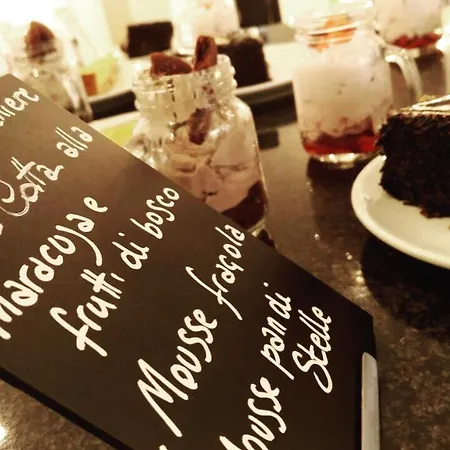 Cotta alla
Maracuja e
frutti di bosco
Mousse fragola
Mousse pan di
Stelle